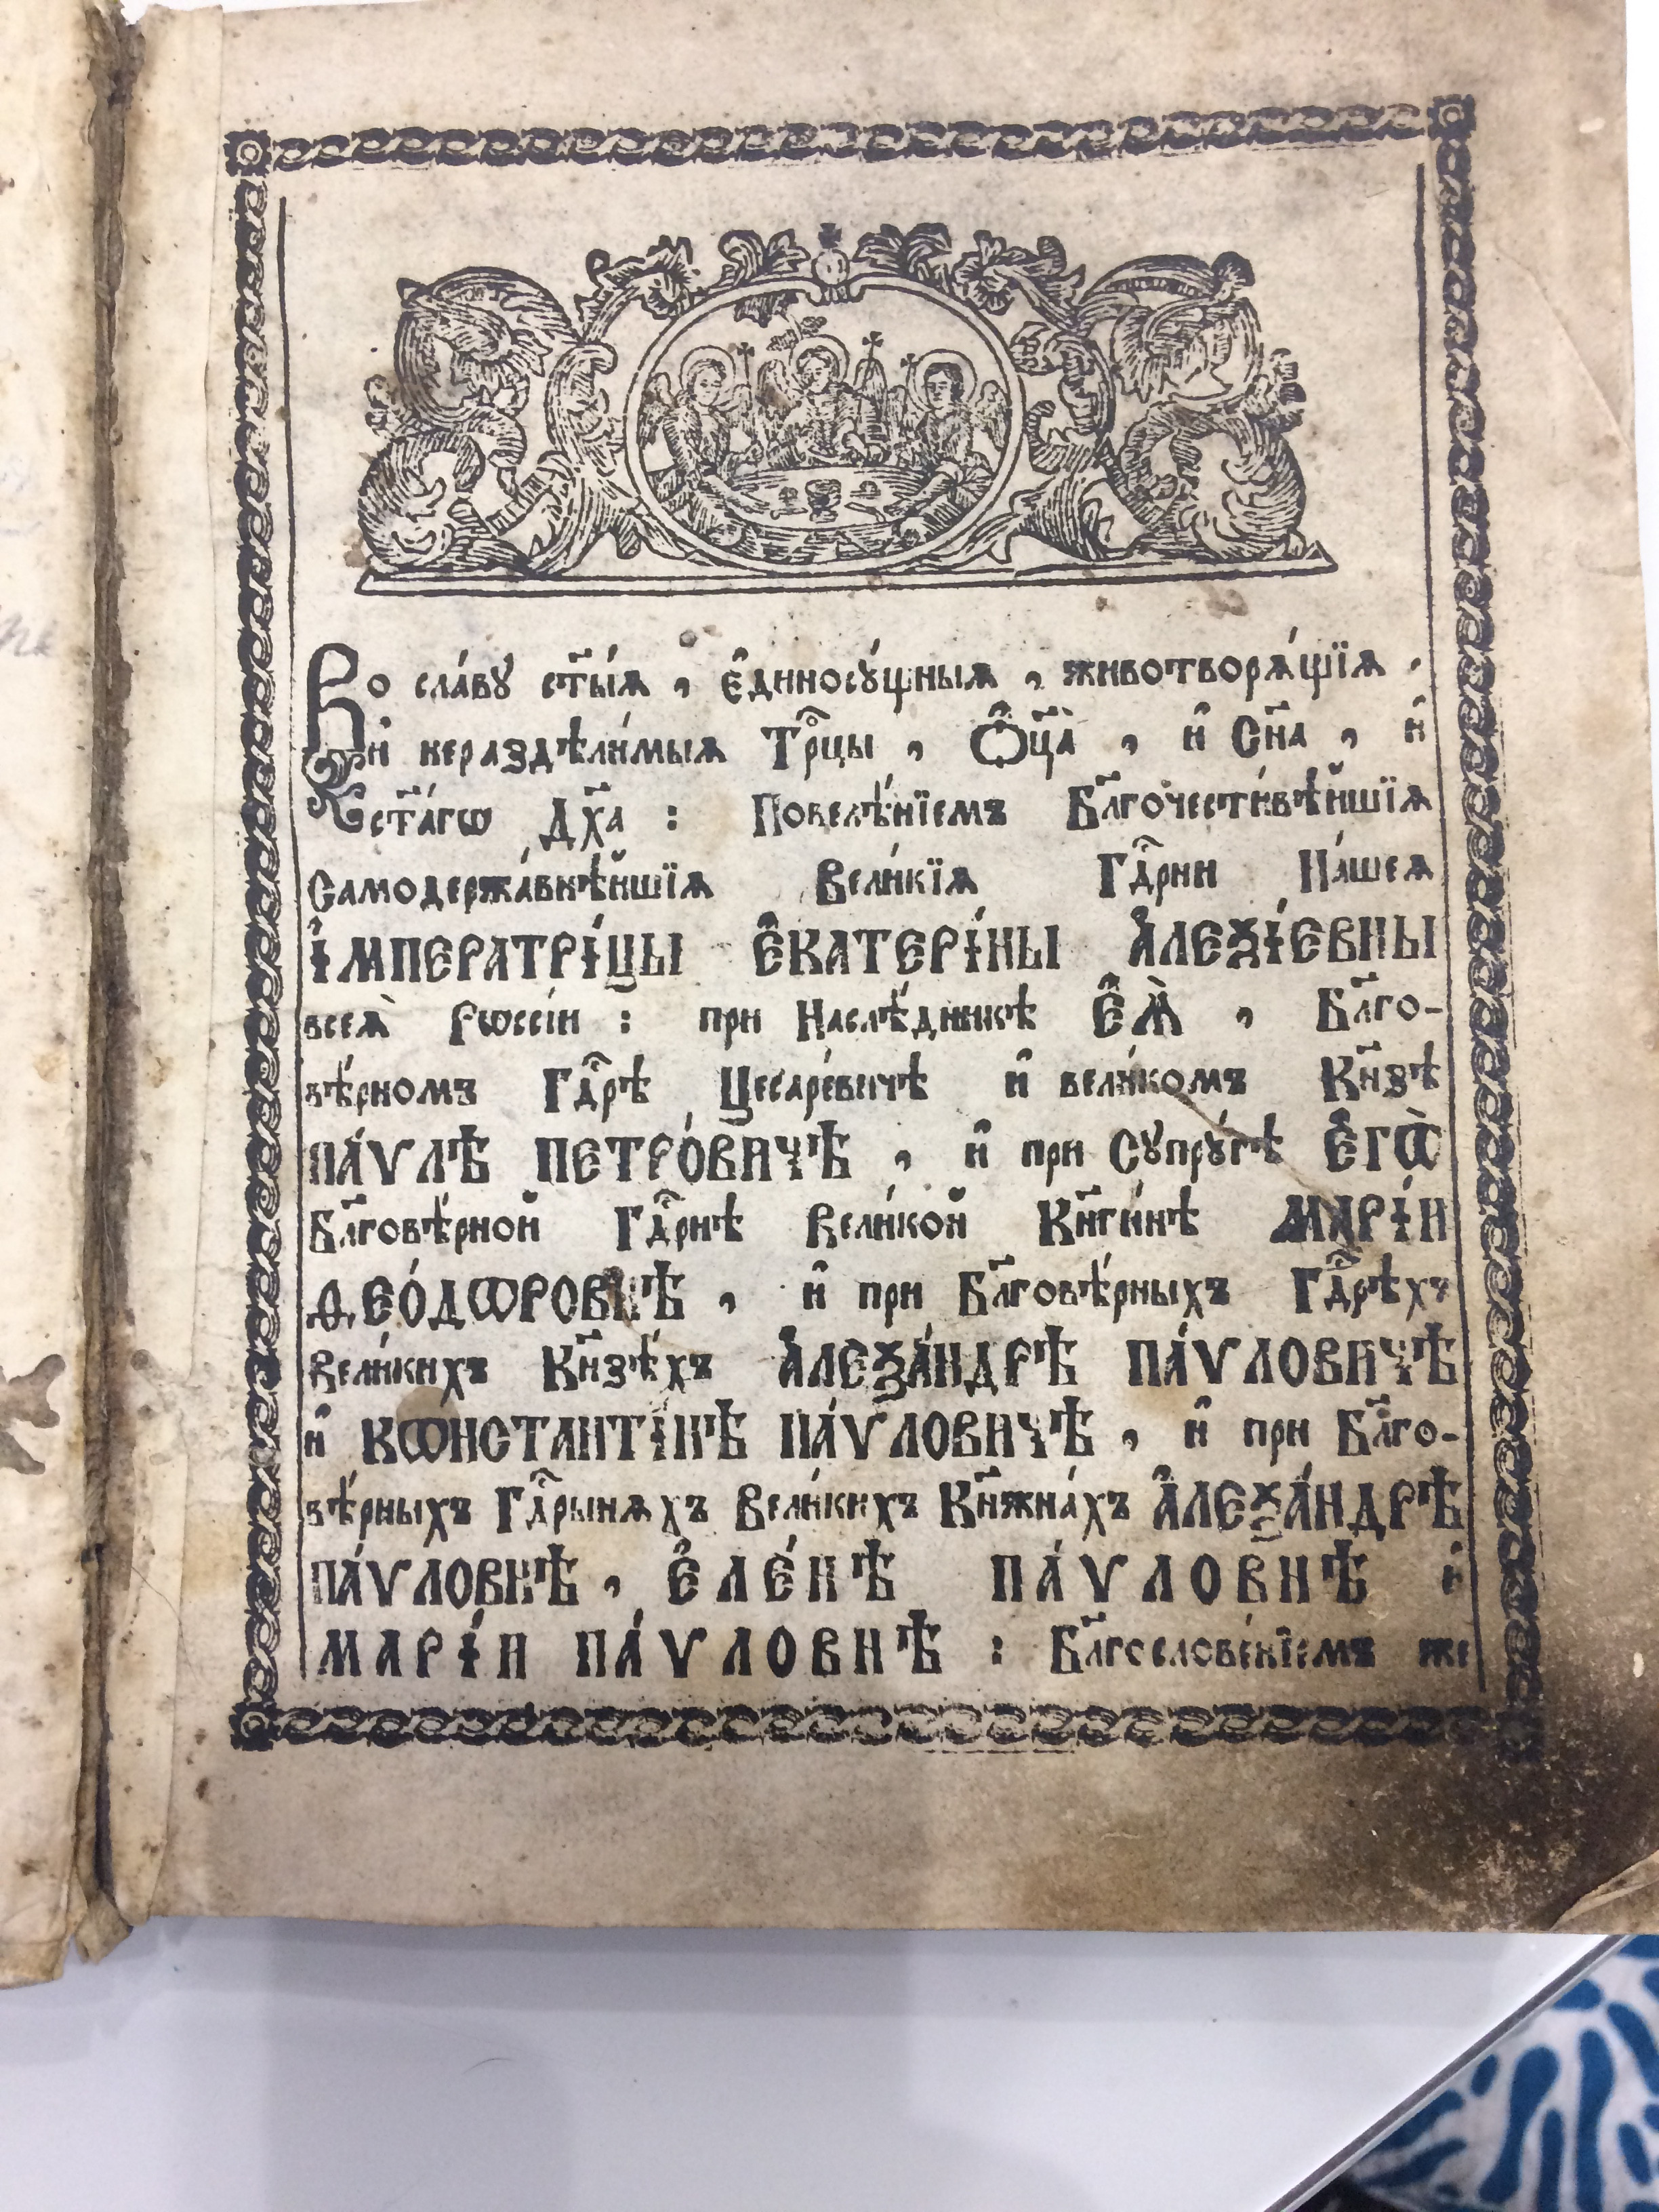 Во сла́вꙋ ст҃ы́ѧ , є҆диносꙋ́щныѧ , животворѧ́щїѧ ,
и҆ нераздѣли́мыѧ Трⷪ҇цы , Ѻ҆ц҃а̀ , и҆ Сн҃а , и҆
ст҃а́гѡ Дх҃а : Повелѣ́нїемъ Бл҃гочести́вѣйшїѧ
Самодержа́внѣйшїѧ Вели́кїѧ Гдⷭ҇рни На́шеѧ
І҆МПЕРАТРІ́ЦЫ Є҆КАТЕРІ́НЫ А҆ЛЕѮІ́ЕВНЫ
всеѧ̀ Рѡссі́и : при Наслѣ́дникѣ Є҆Ѧ̀ , Бл҃го-
вѣ́рномъ Гдⷭ҇рѣ Цесаре́вичѣ и҆ вели́комъ Кн҃зѣ
ПА́ѴЛѢ ПЕТРО́ВИЧѢ , и҆ при Сꙋпрꙋ́гѣ Є҆ГѠ̀
Бл҃говѣ́рной Гдⷭ҇рнѣ Вели́кой Кн҃ги́нѣ МАРІ́И
Ѳ҆ЕО́ДѠРОВНѢ , и҆ при Бл҃говѣ́рныхъ Гдⷭ҇рѣхъ
Вели́кихъ Кн҃зѣ́хъ А҆ЛЕѮА́НДРѢ ПА́ѴЛОВИЧѢ
и҆ КѠНСТАНТІ́НѢ ПА́ѴЛОВИЧѢ , и҆ при Бл҃го-
вѣ́рныхъ Гдⷭ҇рынѧхъ Вели́кихъ Кн҃жна́хъ А҆ЛЕѮА́НДРѢ
ПА́ѴЛОВНѢ , Є҆ЛЕ́НѢ ПА́ѴЛОВНѢ и҆
МАРІ́И ПА́ѴЛОВНѢ : Бл҃гослове́нїемъ же